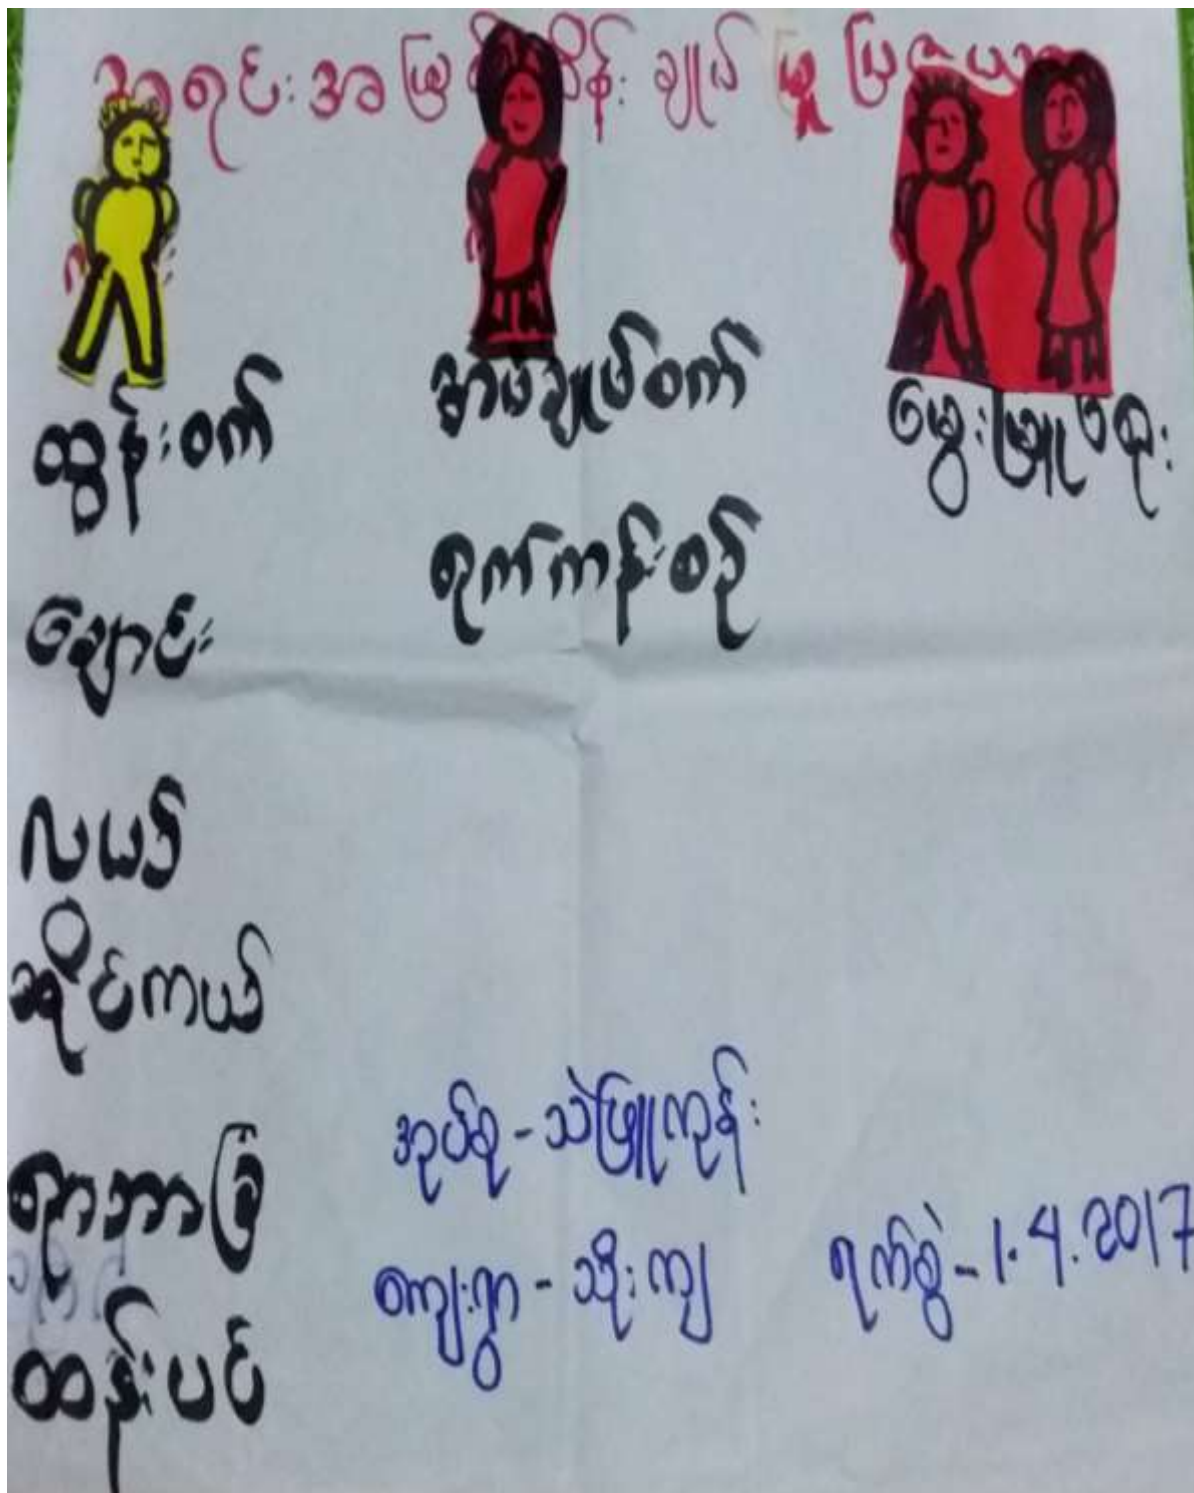 အရင်းအမြစ် ထိန်းချုပ်မှု ပြဇယား
ထွန်းစက် အာမချုပ်စက် မွေးမြူရေး
ချောင်း ရက်ကန်းစင်
လယ်
ဆိုင်ကယ်
ရာဘာခြံ
ထန်းပင်
အုပ်စု - သဲဖြူကုန်း
ကျေးရွာ - သိုးကျ
ရက်စွဲ - 1.4.2017